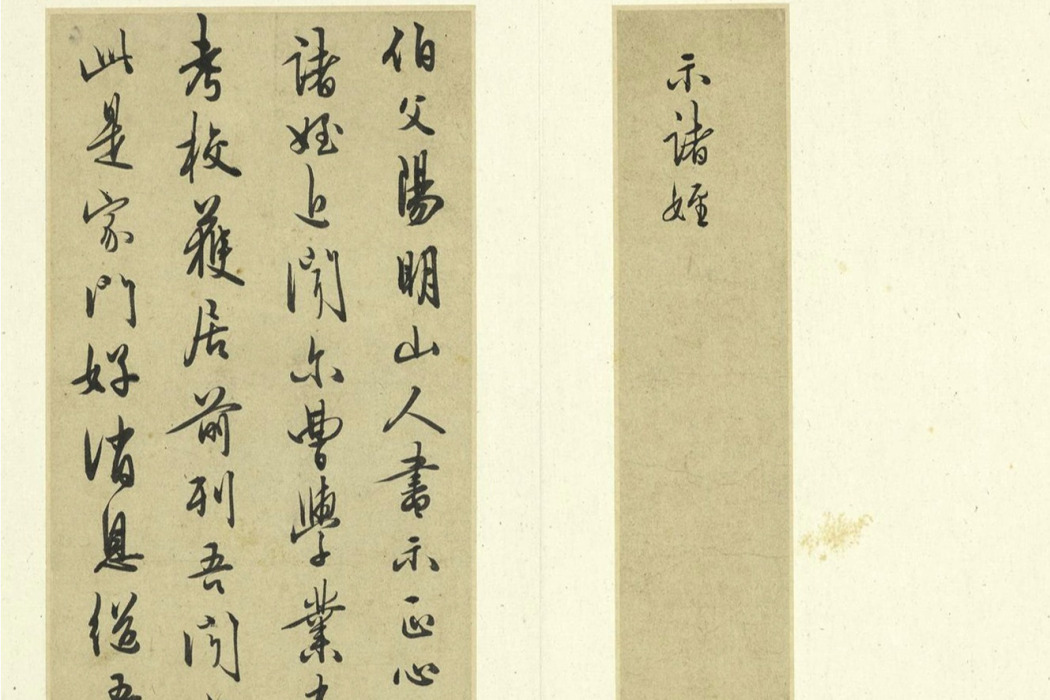 示諸姪
伯父陽明山人書示正心
諸姪近聞尔曹學業
考校獲居前列吾聞
此是家門好消息継吾